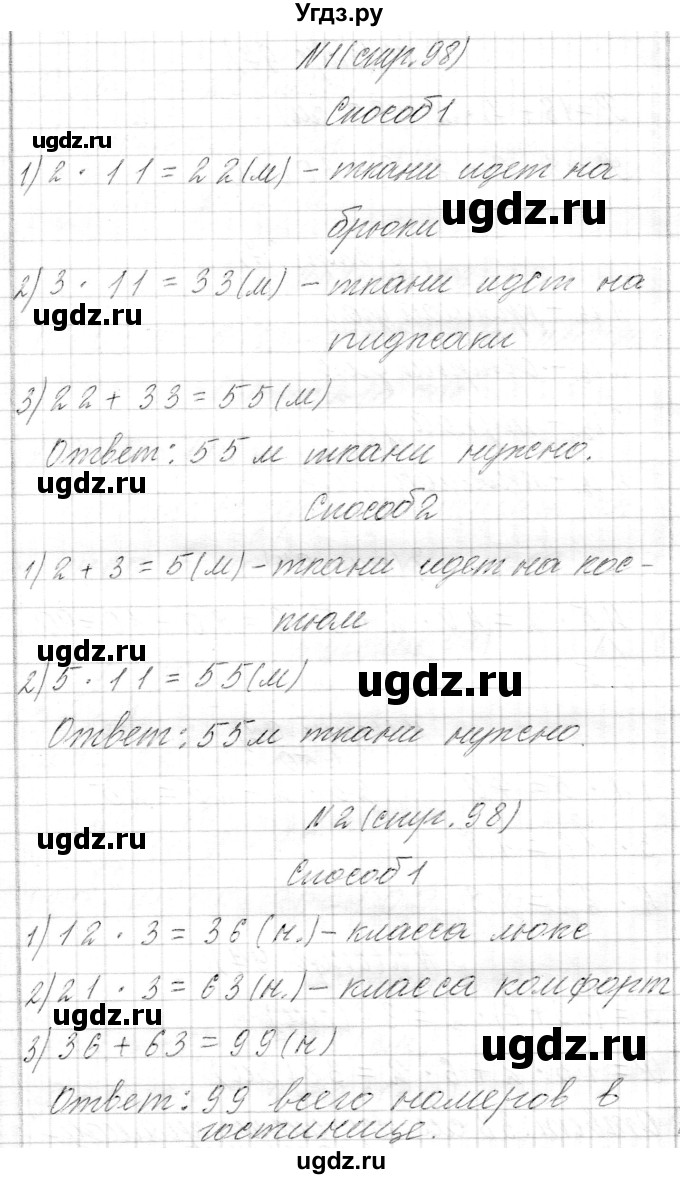 Угдз.ру
N1(стр.98)
Способ1
ugdz.ru
1) 2 · 11 = 22(м) - ткани идет на
ugdz.ru
брюки
2) 3 · 11 = 33(м) - ткани идет на
ugdz.ru
пиджаки
3) 22 + 33 = 55(м)
Ответ: 55 м ткани нужно.
ugdz.ru
Способ2
1) 2 + 3 = 5(м) - ткани идет на кос-
тюм
ugdz.ru
2) 5 · 11 = 55(м)
ugdz.ru
Ответ: 55м ткани нужно.
N2(стр.98)
ugdz.ru
Способ1
1) 12 · 3 = 36 (н.) - класса люкс
2) 21 · 3 = 63(н.) - класса комфорт
ugdz.ru
3) 36 + 63 = 99(н)
ugdz.ru
Ответ: 99 всего номеров в
гостинице.
ugdz.ru